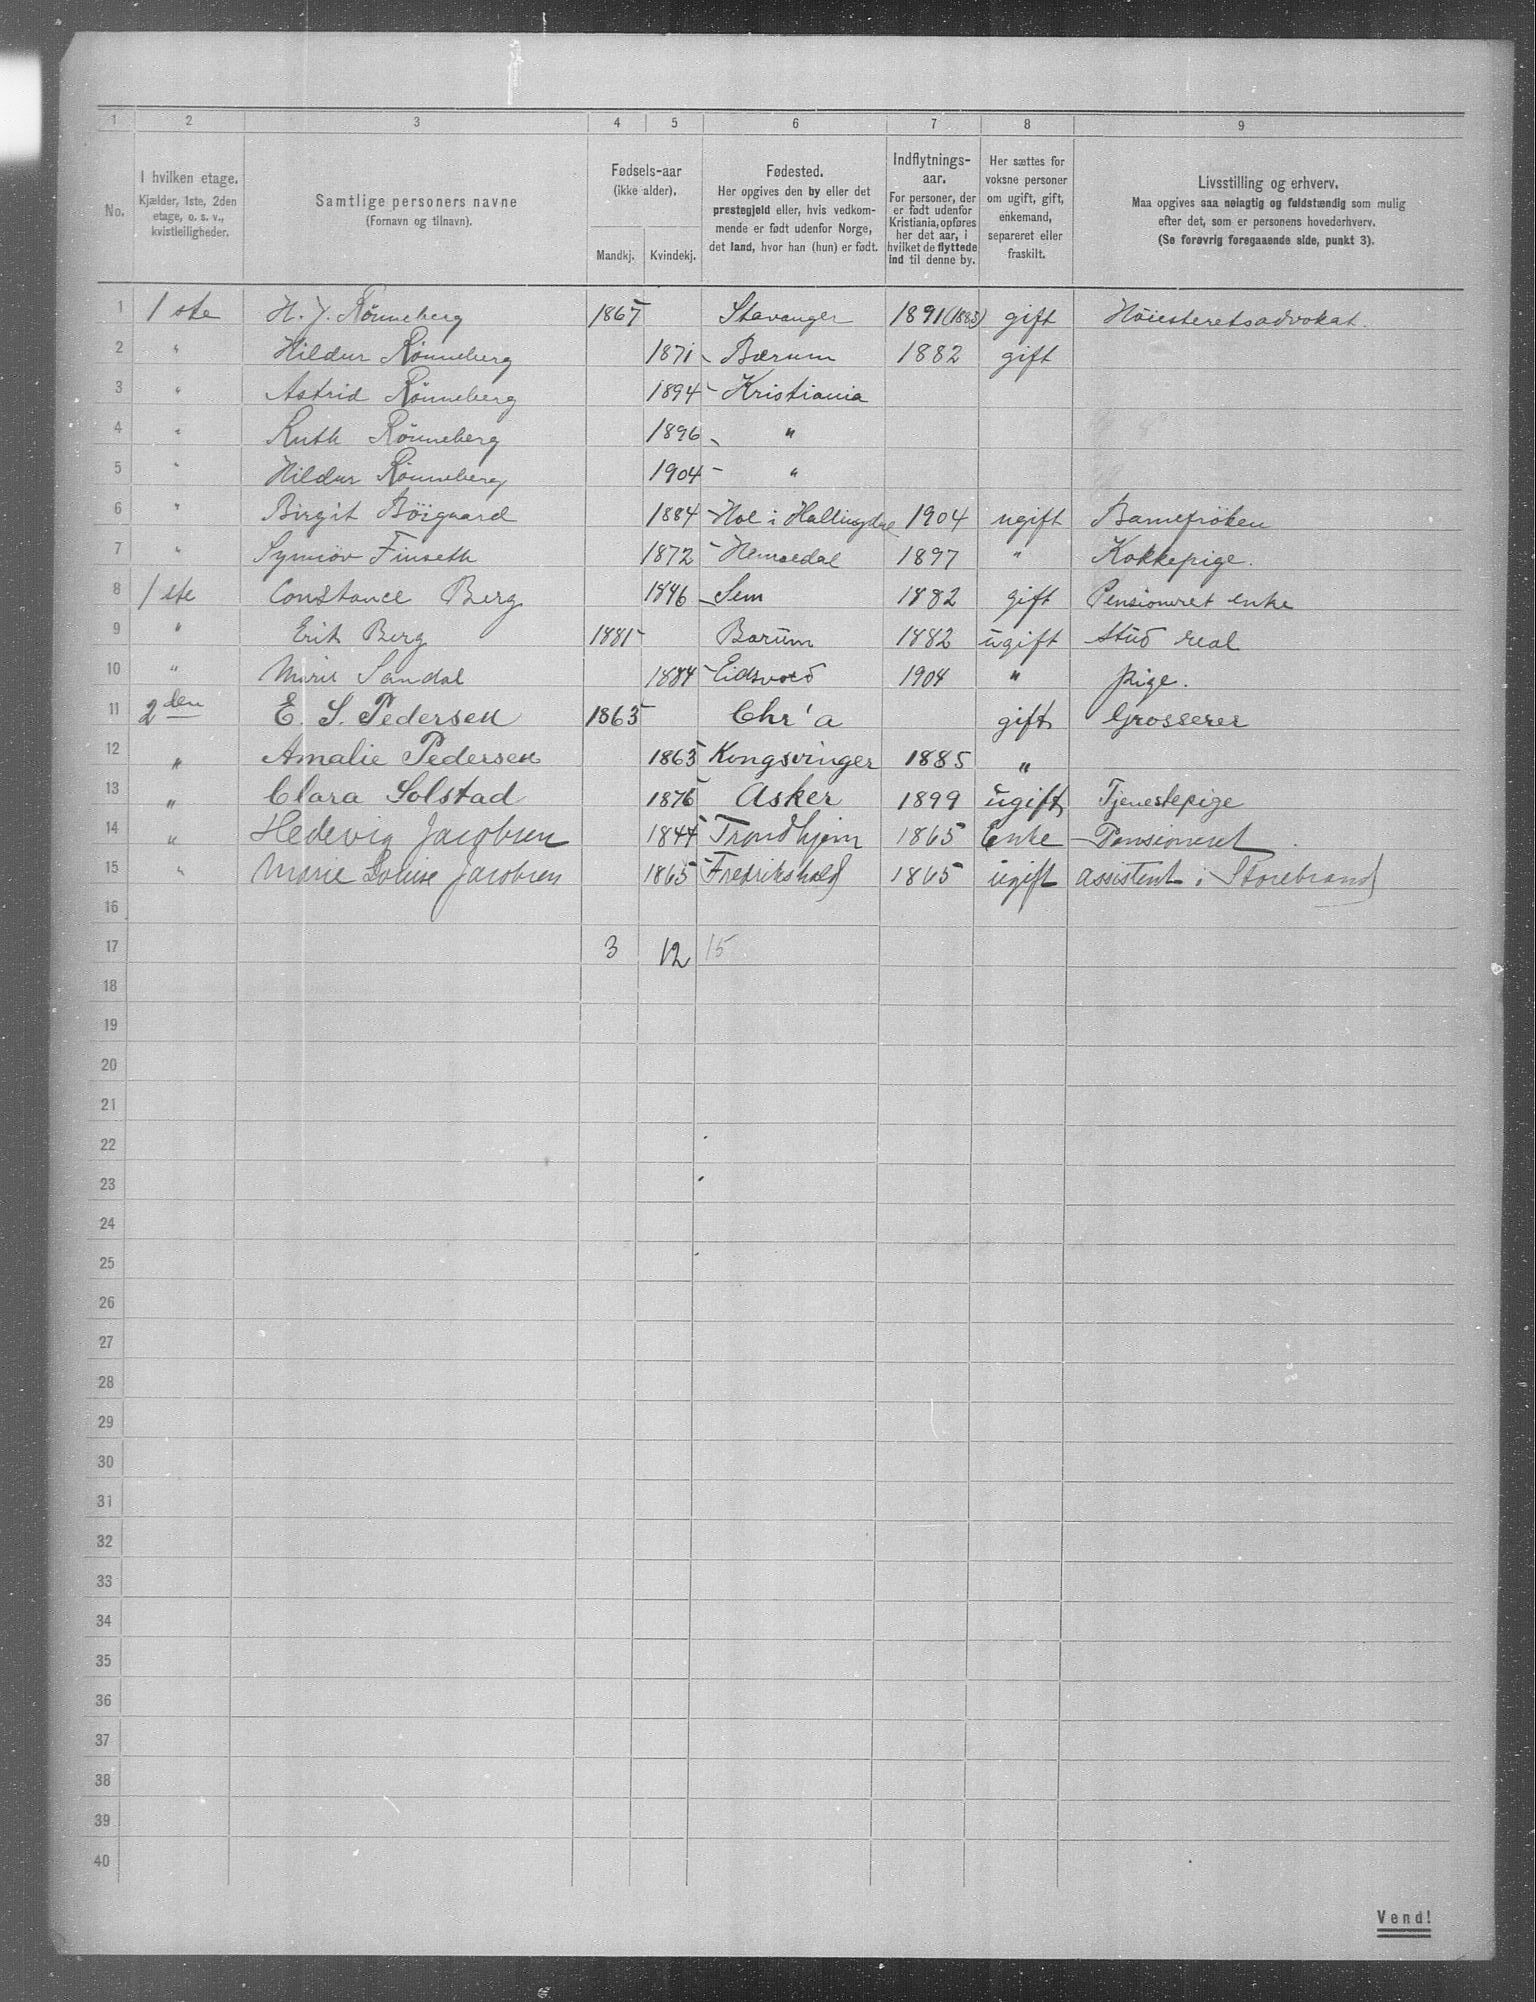 1 2 3 4 5 6 7 8 9
No.
I hvilken etage.
Kjælder, 1ste, 2den
etage, o. s. v.,
kvistleiligheder.
Samtlige personers navne
(Fornavn og tilnavn).
Fødsels-aar
(ikke alder).
Mandkj. Kvindekj.
Fødested.
Her opgives den by eller det
prestegjeld eller, hvis vedkom-
mende er født udenfor Norge,
det land, hvor han (hun) er født.
Indflytnings-
aar.
For personer, der
er født udenfor
Kristiania, opføres
her det aar, i
hvilket de flyttede
ind til denne by.
Her sættes for
voksne personer
om ugift, gift,
enkemand,
separeret eller
fraskilt.
Livsstilling og erhverv.
Maa opgives saa nøiagtig og fuldstændig som mulig
efter det, som er personens hovederhverv.
(Se forøvrig foregaaende side, punkt 3).
1 1 ste H. J. Rönneberg 1867 Stavanger 1891 (1885) gift Höiesteretsadvokat.
2 " Hildur Rönneberg 1871 Bærum 1882 gift
3 " Astrid Rönneberg 1894 Kristiania
4 " Ruth Rönneberg 1896 "
5 " Hildur Rönneberg 1904 "
6 " Birgit Böigaard 1884 Hol i Hallingdal 1904 ugift Barnefröken
7 " Synnöv Finseth 1872 Hemsedal 1897 " Kokkepige.
8 1 ste Constance Berg 1846 Sem 1882 gift Pensioneret enke
9 " Erik Berg 1881 Barüm 1882 ugift stud real
10 " Marie Sandal 1884 Eidsvold 1904 " pige.
11 2 den E. S. Pedersen 1863 Chr'a gift Grosserer
12 " Amalie Pedersen 1863 Kongsvinger 1885 "
13 " Clara Solstad 1876 Asker 1899 ugift Tjenestepige
14 " Hedevig Jacobsen 1844 Trondhjem 1865 Enke Pensioneret
15 " Marie Louise Jacobsen 1865 Fredrikshald 1865 ugift assistent i Storebrand
16
17 3 12 15
18
19
20
21
22
23
24
25
26
27
28
29
30
31
32
33
34
35
36
37
38
39
40
Vend!